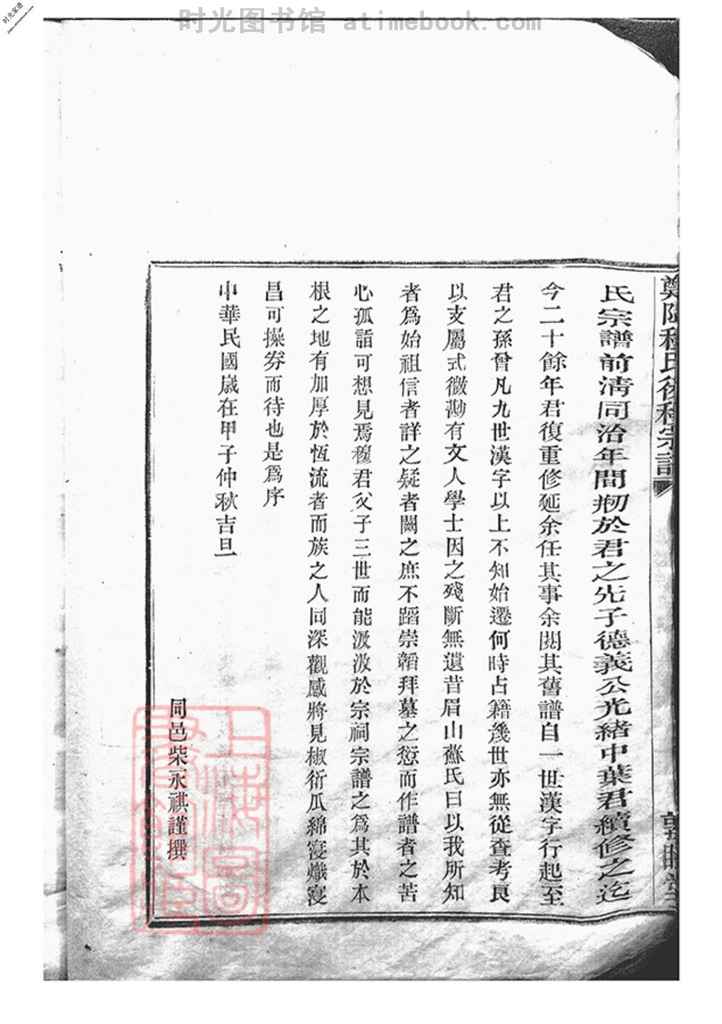 时光图书馆 atimebook.com
氏宗譜前淸同治年間剏於君之先子德義公光緖中葉君續修之迄
今二十餘年君復重修延余任其事余閱其舊譜自一世漢字行起至
君之孫曾凡九世漢字以上不知始遷何時占籍幾世亦無從查考良
以支屬式微尠有文人學士因之殘斷無遺昔眉山蘇氏曰以我所知
者爲始祖信者詳之疑者闕之庶不蹈崇韜拜墓之愆而作譜者之苦
心孤詣可想見焉穆君父子三世而能汲汲於宗祠宗譜之爲其於本
根之地有加厚於恆流者而族之人同深觀感將見椒衍瓜綿寖熾寖
昌可操券而待也是爲序
中華民國歲在甲子仲秋吉旦
同邑柴永祺謹撰